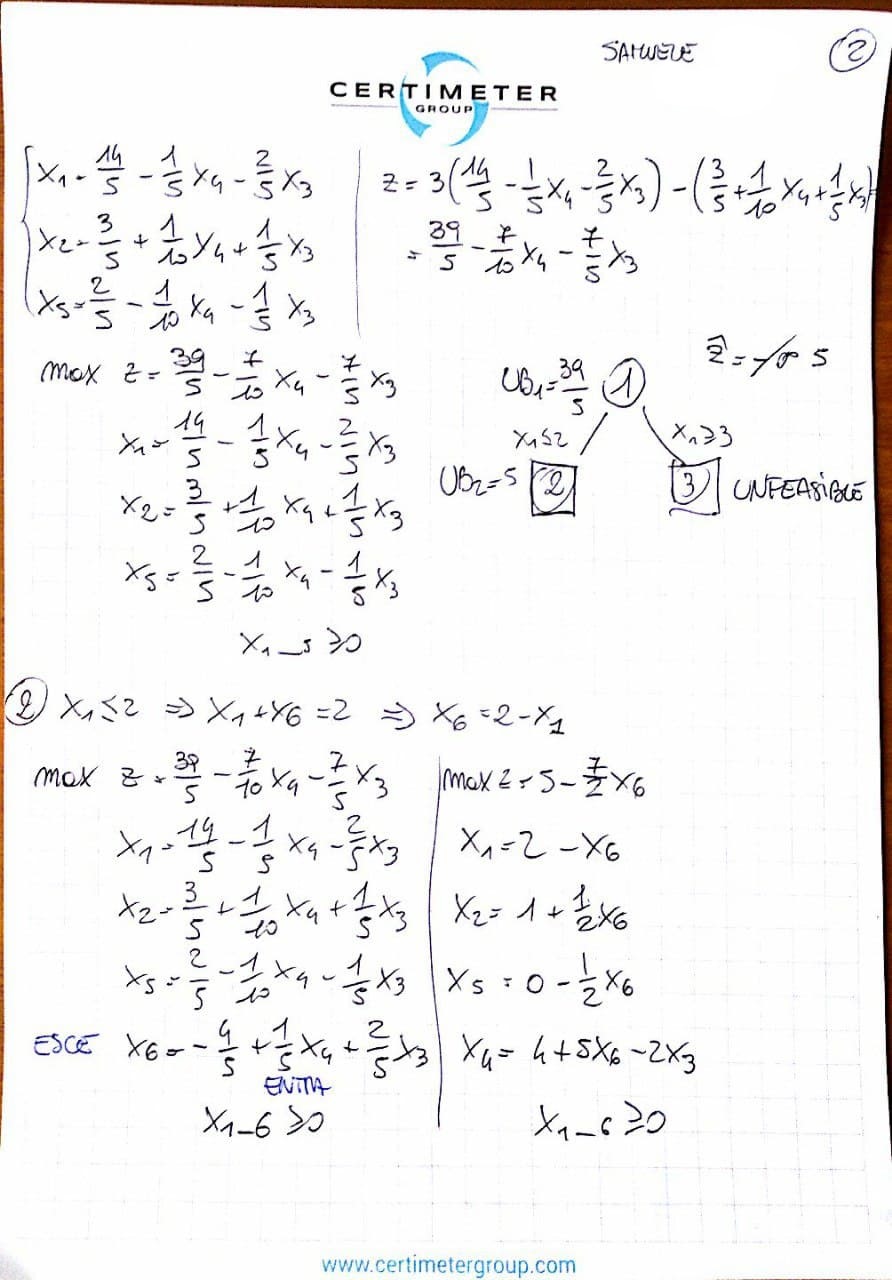 SAMUELE
2
CERTIMETER
GROUP
x₁ = 14/5 - 1/5 x₄ - 2/5 x₃
x₂ = 3/5 + 1/10 x₄ + 1/5 x₃
x₅ = 2/5 - 1/10 x₄ - 1/5 x₃
z = 3(14/5 - 1/5 x₄ - 2/5 x₃) - (3/5 + 1/10 x₄ + 1/5 x₃) =
= 39/5 - 7/10 x₄ - 7/5 x₃
max z = 39/5 - 7/10 x₄ - 7/5 x₃
x₁ = 14/5 - 1/5 x₄ - 2/5 x₃
x₂ = 3/5 + 1/10 x₄ + 1/5 x₃
x₅ = 2/5 - 1/10 x₄ - 1/5 x₃
x₁₋₅ ≥ 0
ẑ = -∞ 5
UB₁ = 39/5 1
x₁ ≤ 2 x₁ ≥ 3
UB₂ = 5 2 3 UNFEASIBLE
2 x₁ ≤ 2 ⇒ x₁ + x₆ = 2 ⇒ x₆ = 2 - x₁
max z = 39/5 - 7/10 x₄ - 7/5 x₃
x₁ = 14/5 - 1/5 x₄ - 2/5 x₃
x₂ = 3/5 + 1/10 x₄ + 1/5 x₃
x₅ = 2/5 - 1/10 x₄ - 1/5 x₃
ESCE x₆ = - 4/5 + 1/5 x₄ + 2/5 x₃
ENTRA
x₁₋₆ ≥ 0
max z = 5 - 7/2 x₆
x₁ = 2 - x₆
x₂ = 1 + 1/2 x₆
x₅ = 0 - 1/2 x₆
x₄ = 4 + 5x₆ - 2x₃
x₁₋₆ ≥ 0
www.certimetergroup.com